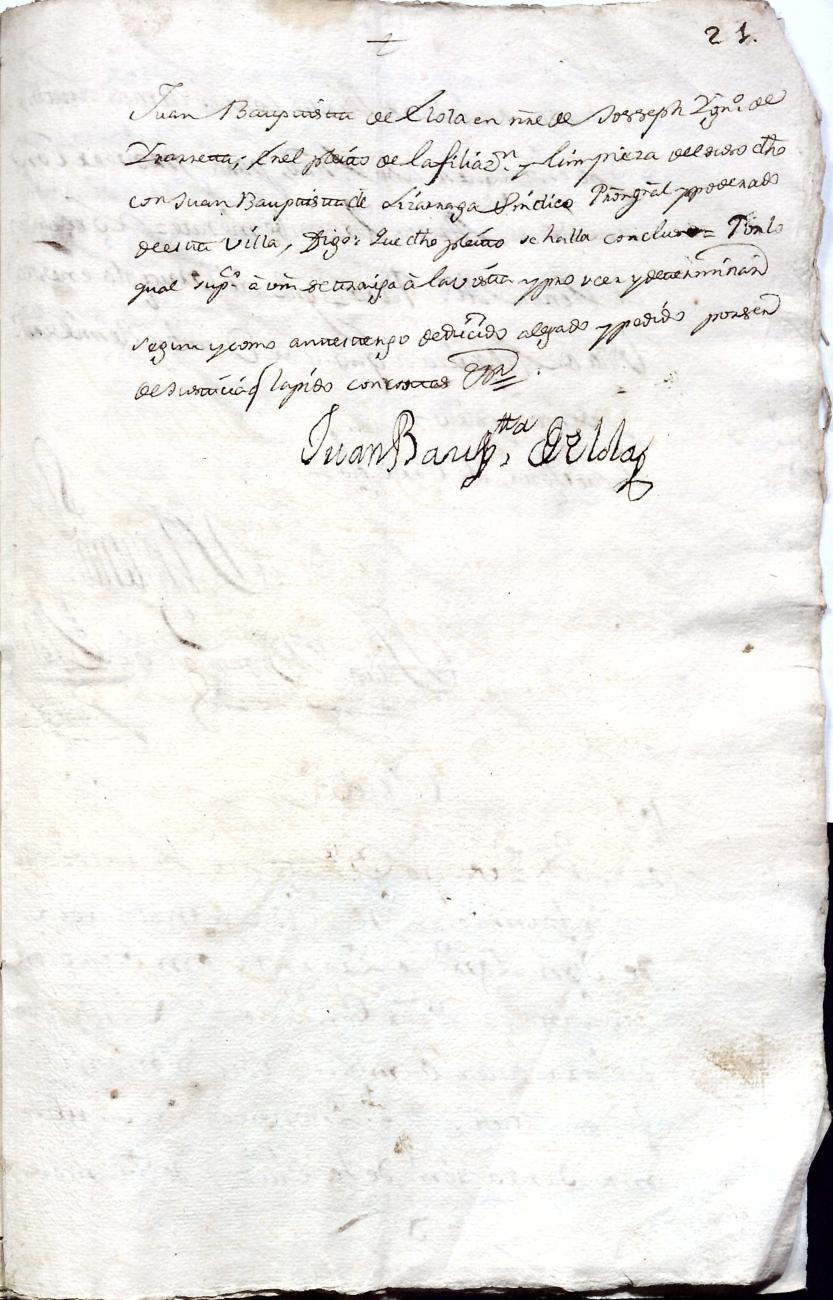 +
21.
Juan Bauptista de Elola en nre de Josseph Ygn.º de
Yrarreta; En el pleito de la filiaz.n y limpieza del suso dho
con Juan Bauptista de Lizarraga Sindico Prõr grãl y poderado
de esta Villa, Digo: Que dho pleito se halla concluso = Por lo
qual sup.co à vm se traiga à la vista y proveer y determinar
segun y como antes tengo deducido alegado y pedido por ser
de Justicia q la pido con costas
Juan Baup.tta de Elola